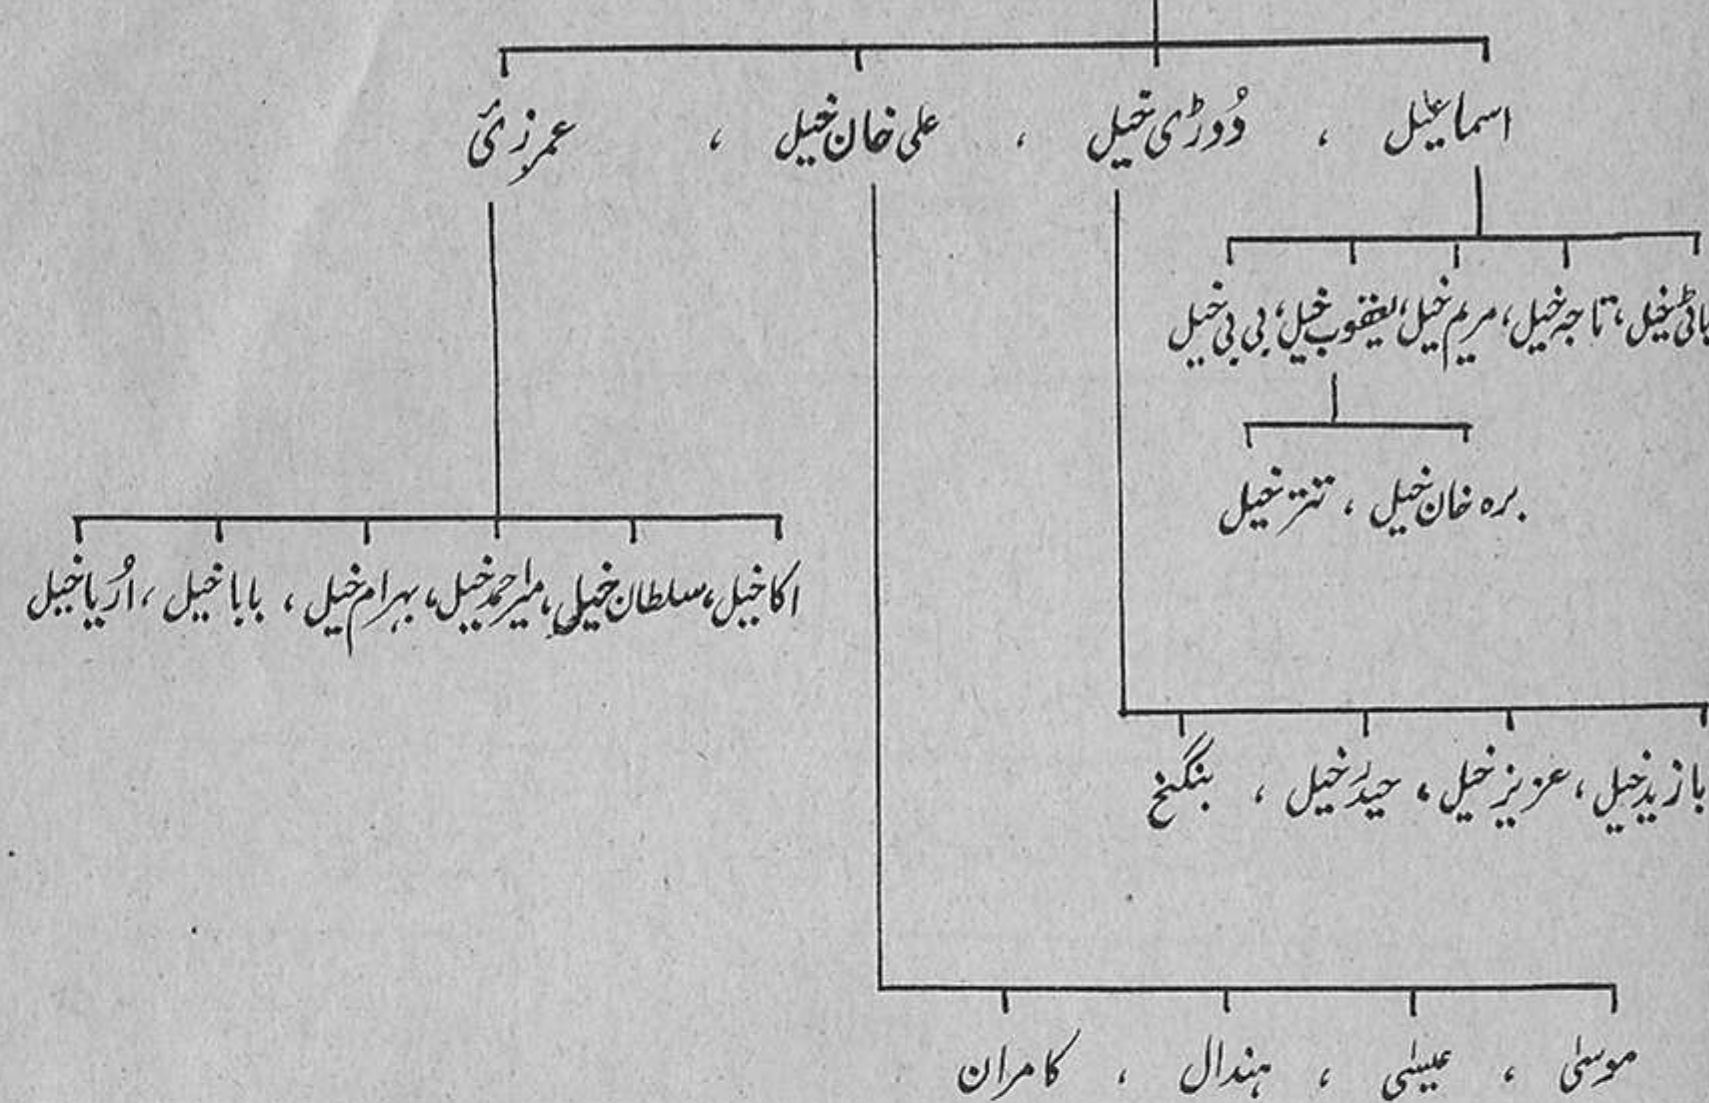 اسماعیل ، دُوڑی خیل ، علی خان خیل ، عمرزئ
تاجہ خیل، مریم خیل، یعقوب خیل، بی بی خیل
برہ خان خیل ، تترخیل
اکاخیل، سلطان خیل، میراحمدخیل، بہرام خیل ، باباخیل ، اڑیاخیل
بازیدخیل، عزیزخیل ، حیدرخیل ،
موسیٰ ، عیسٰی ، ہندال ، کامران